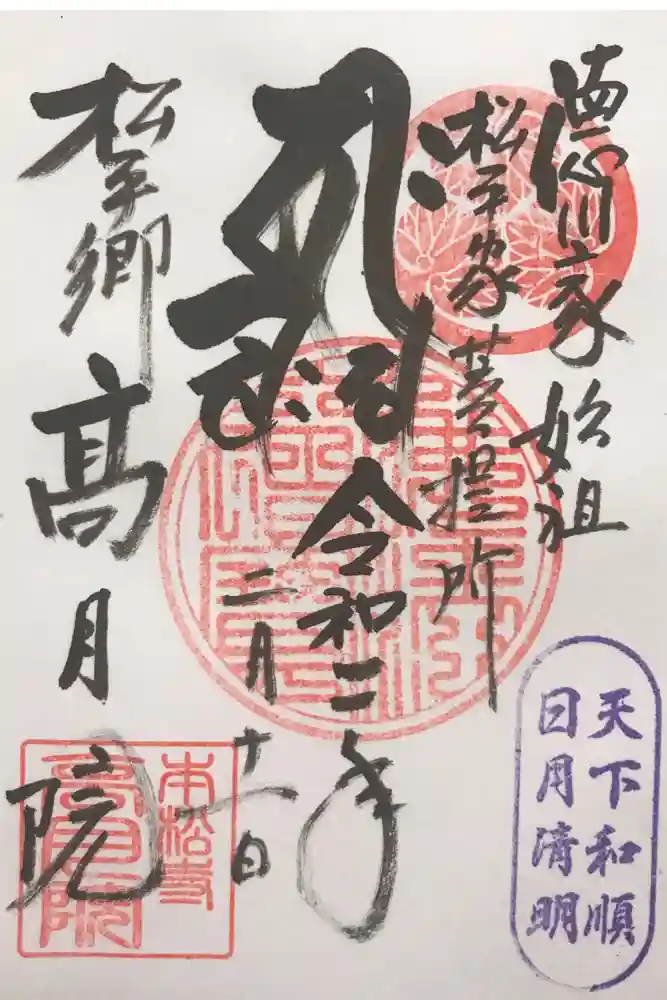 德川家始祖
松平家菩提所
令和二年
二月
十一日
松平郷
高月院
天下和順
日月清明
本松寺
高月院